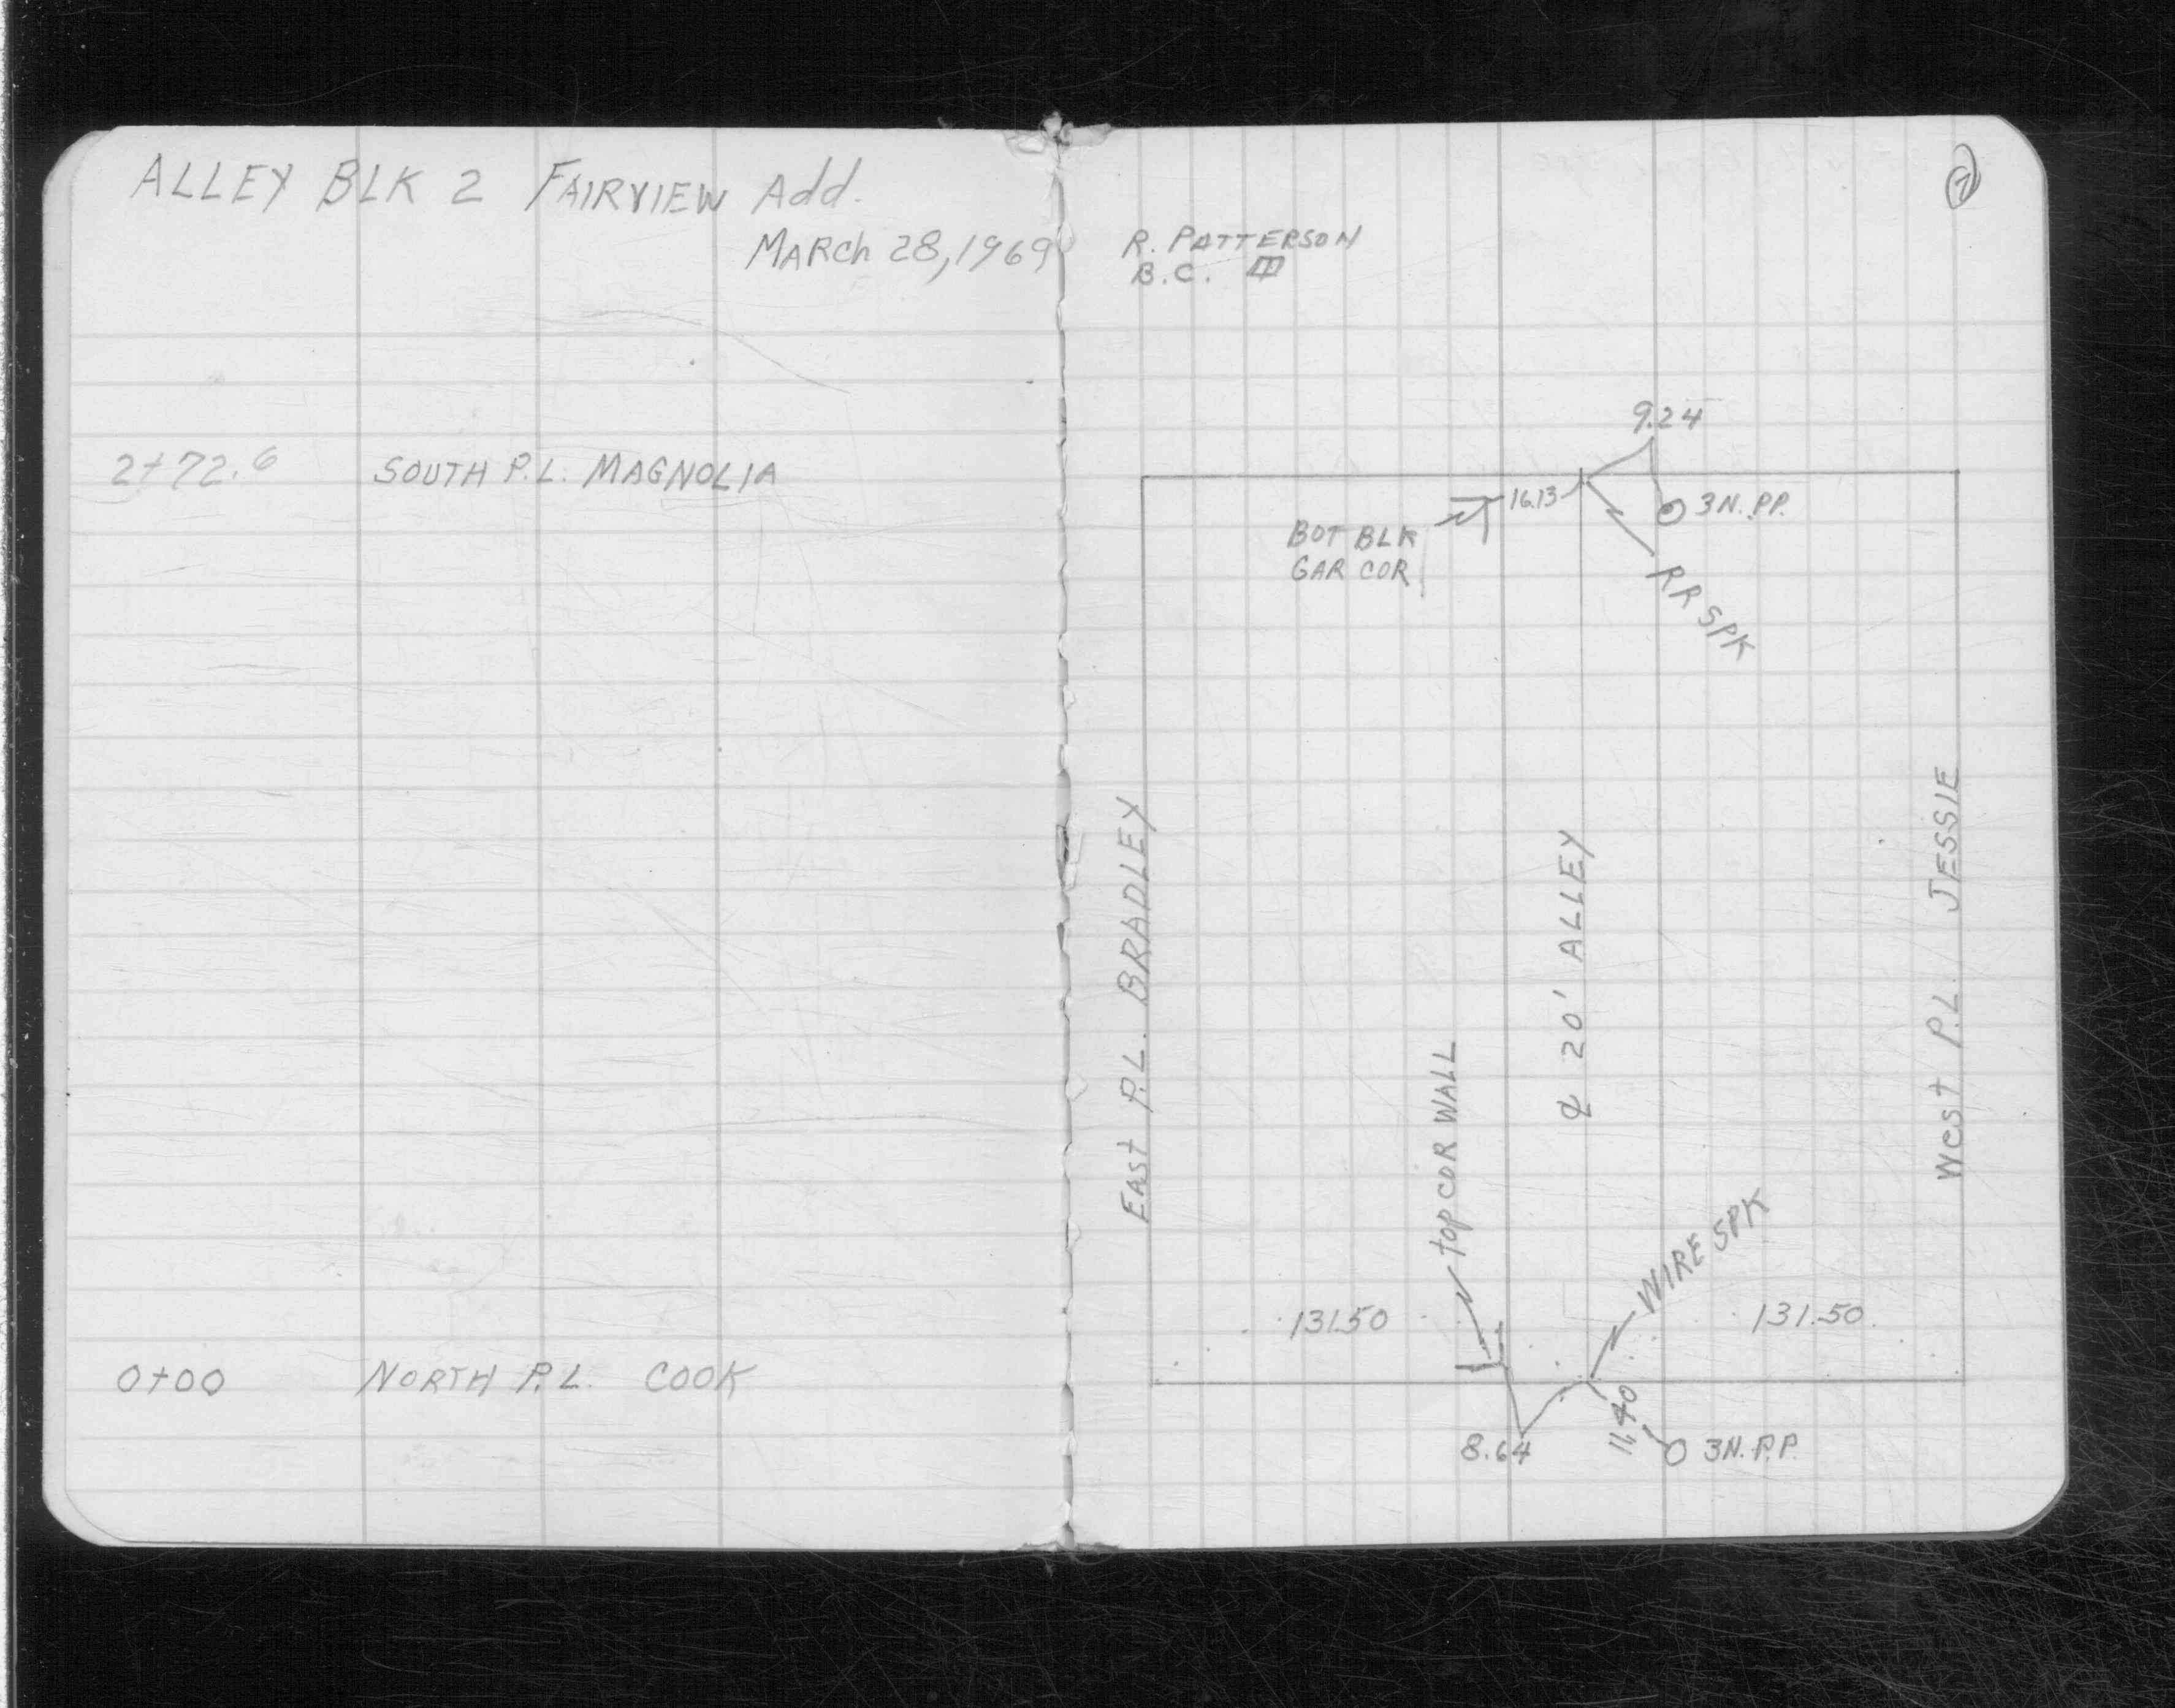 ALLEY BLK 2 FAIRVIEW Add.
MARCh 28, 1969
2+72.6 SOUTH P.L. MAGNOLIA
0+00 NORTH P.L. COOK
R. PATTERSON
B.C.
9.24
16.13
3N. P.P.
BOT BLK
GAR COR
RR SPK
East P.L. BRADLEY
top COR WALL
℄ 20' ALLEY
West P.L. JESSIE
WIRE SPK
131.50
131.50
11.40
8.64
3N. P.P.